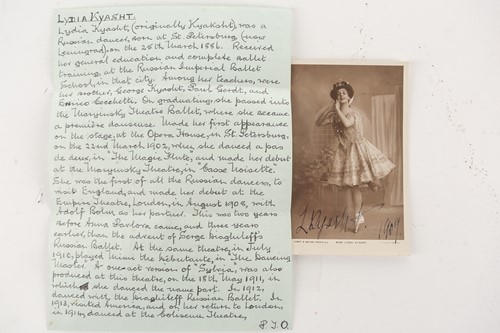 LYDIA KYASHT.
Lydia Kyasht, (originally Kyaksht), was a
Russian dancer, born at St. Petersburg (now
Leningrad), on the 25th March 1886. Received
her general education and complete ballet
training, at the Russian Imperial Ballet
School, in that city. Among her teachers, were
her brother, George Kyasht, Paul Gerdt, and
Enrico Cecchetti. On graduating, she passed into
the Maryinsky Theatre Ballet, where she became
a première danseuse. Made her first appearance
on the stage, at the Opera House, in St. Petersburg,
on the 22nd March 1902, when she danced a pas
de deux, in "The Magic Flute, and made her debut
at the Maryinsky Theatre, in "Casse Noisette".
She was the first of all the Russian dancers, to
visit England, and made her debut at the
Empire Theatre, London, in August 1908, with
Adolf Bolm as her partner. This was two years
before Anna Pavlova came, and three years
earlier, than the advent of Serge Diaghileff's
Russian Ballet. At the same theatre, in July
1910, played Mimi the Debutante, in "The Dancing
Master". A one-act version of "Sylvia", was also
produced at this theatre, on the 18th May 1911, in
which she danced the name part. In 1912,
danced with the Diaghileff Russian Ballet. In
1913, visited America, and on her return to London
in 1914, danced at the Coliseum Theatre,
P.T.O.